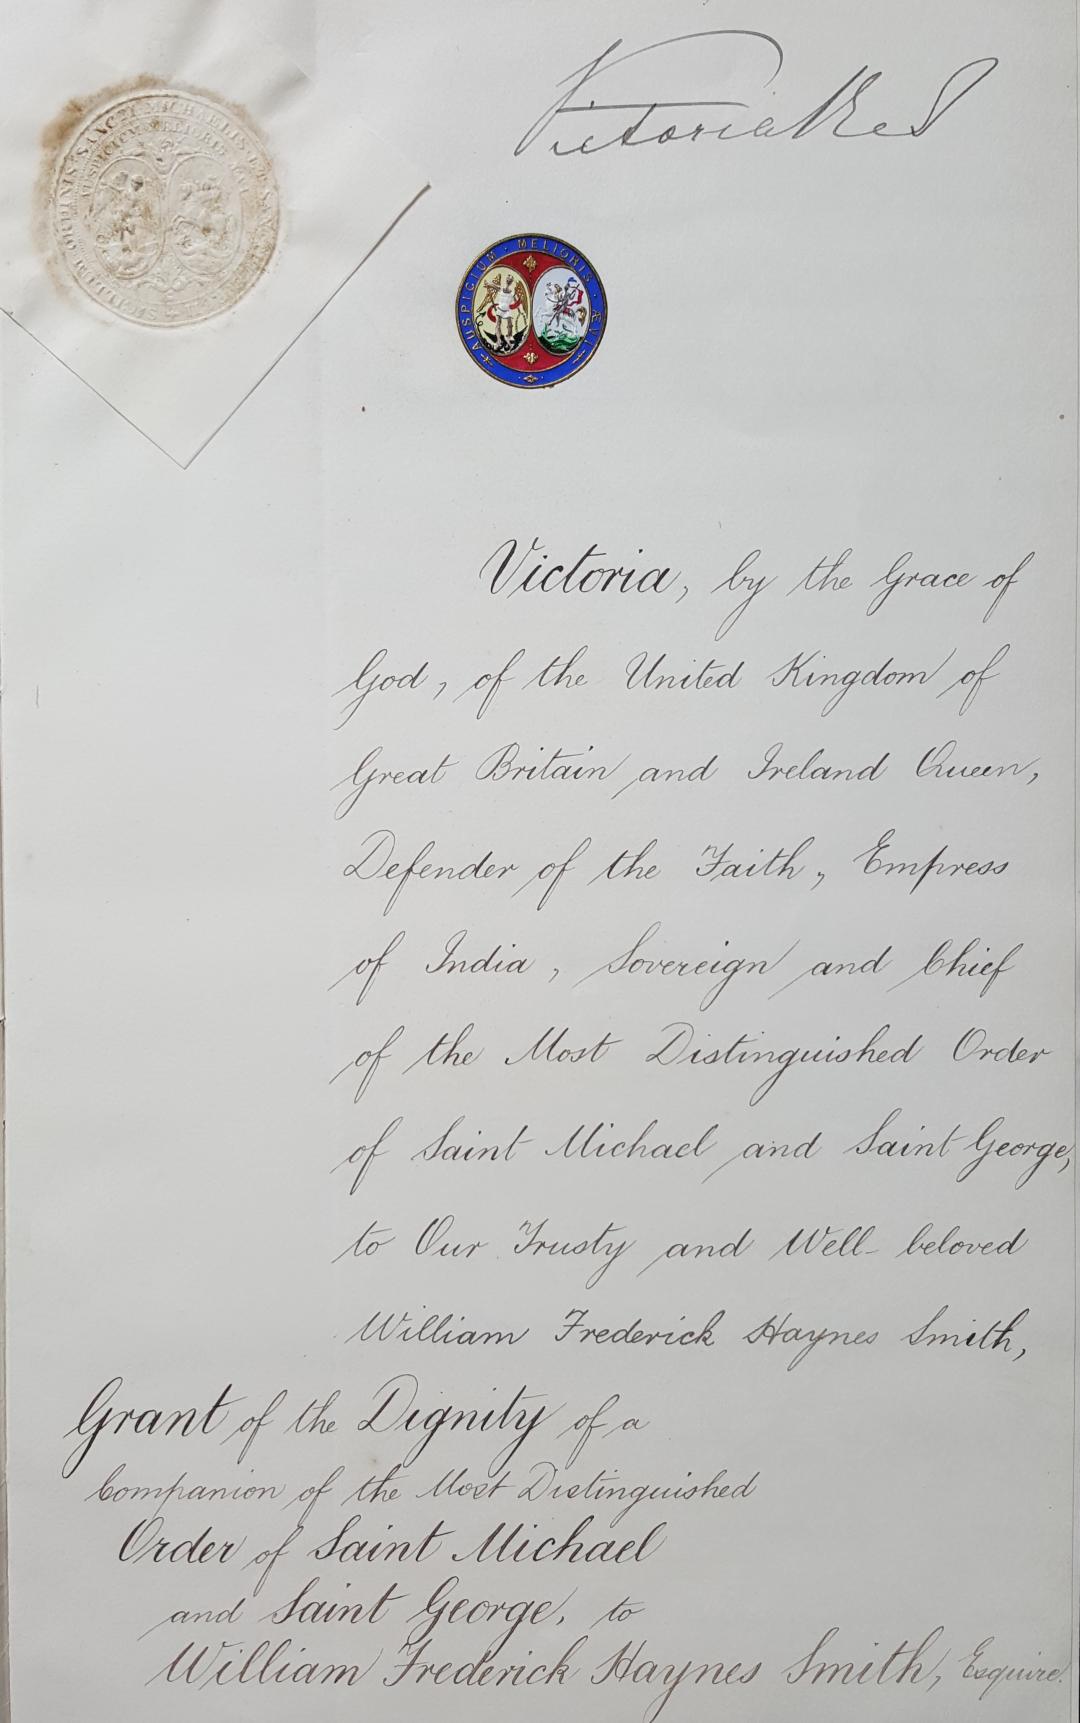 Victoria R et I
SIGILLUM ORDINIS SANCTI MICHAELIS ET SANCTI
AUSPICIUM MELIORIS ÆVI
AUSPICIUM · MELIORIS · ÆVI
Victoria, by the Grace of
God, of the United Kingdom of
Great Britain and Ireland Queen,
Defender of the Faith, Empress
of India, Sovereign and Chief
of the Most Distinguished Order
of Saint Michael and Saint George,
to Our Trusty and Well-beloved
William Frederick Haynes Smith,
Grant of the Dignity of a
Companion of the Most Distinguished
Order of Saint Michael
and Saint George, to
William Frederick Haynes Smith, Esquire.